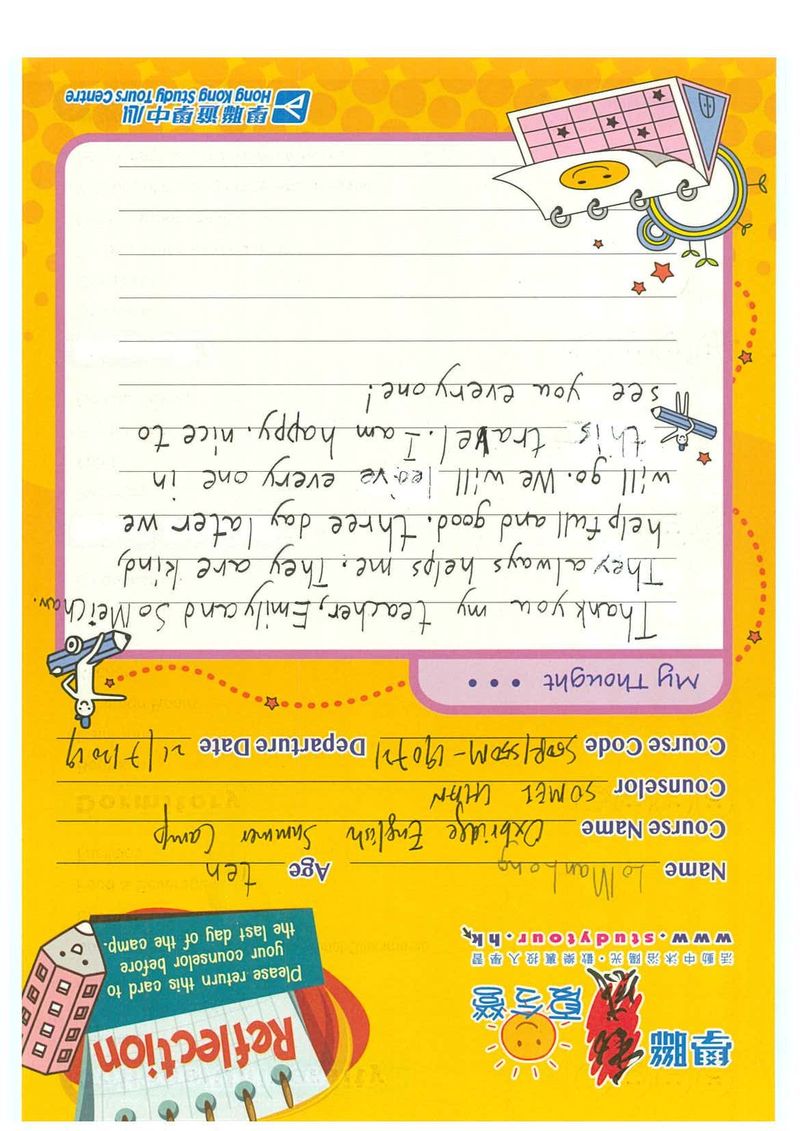 Reflection
Please return this card to
your counselor before
the last day of the camp.
學聯
夏令營
活動中沐浴陽光・歡樂裏投入學習
www.studytour.hk
Name Lo Man Long Age ten
Course Name Oxbridge English Summer Camp
Counselor SO MEI CHAN
Course Code Departure Date 21/7/2019
My Thought ...
Thank you my teacher, Emily and So Mei Chan.
They always helps me. They are kind,
help full and good. three day later we
will go. We will leave every one in
this travel. I am happy. nice to
see you every one!
學聯遊學中心
Hong Kong Study Tours Centre